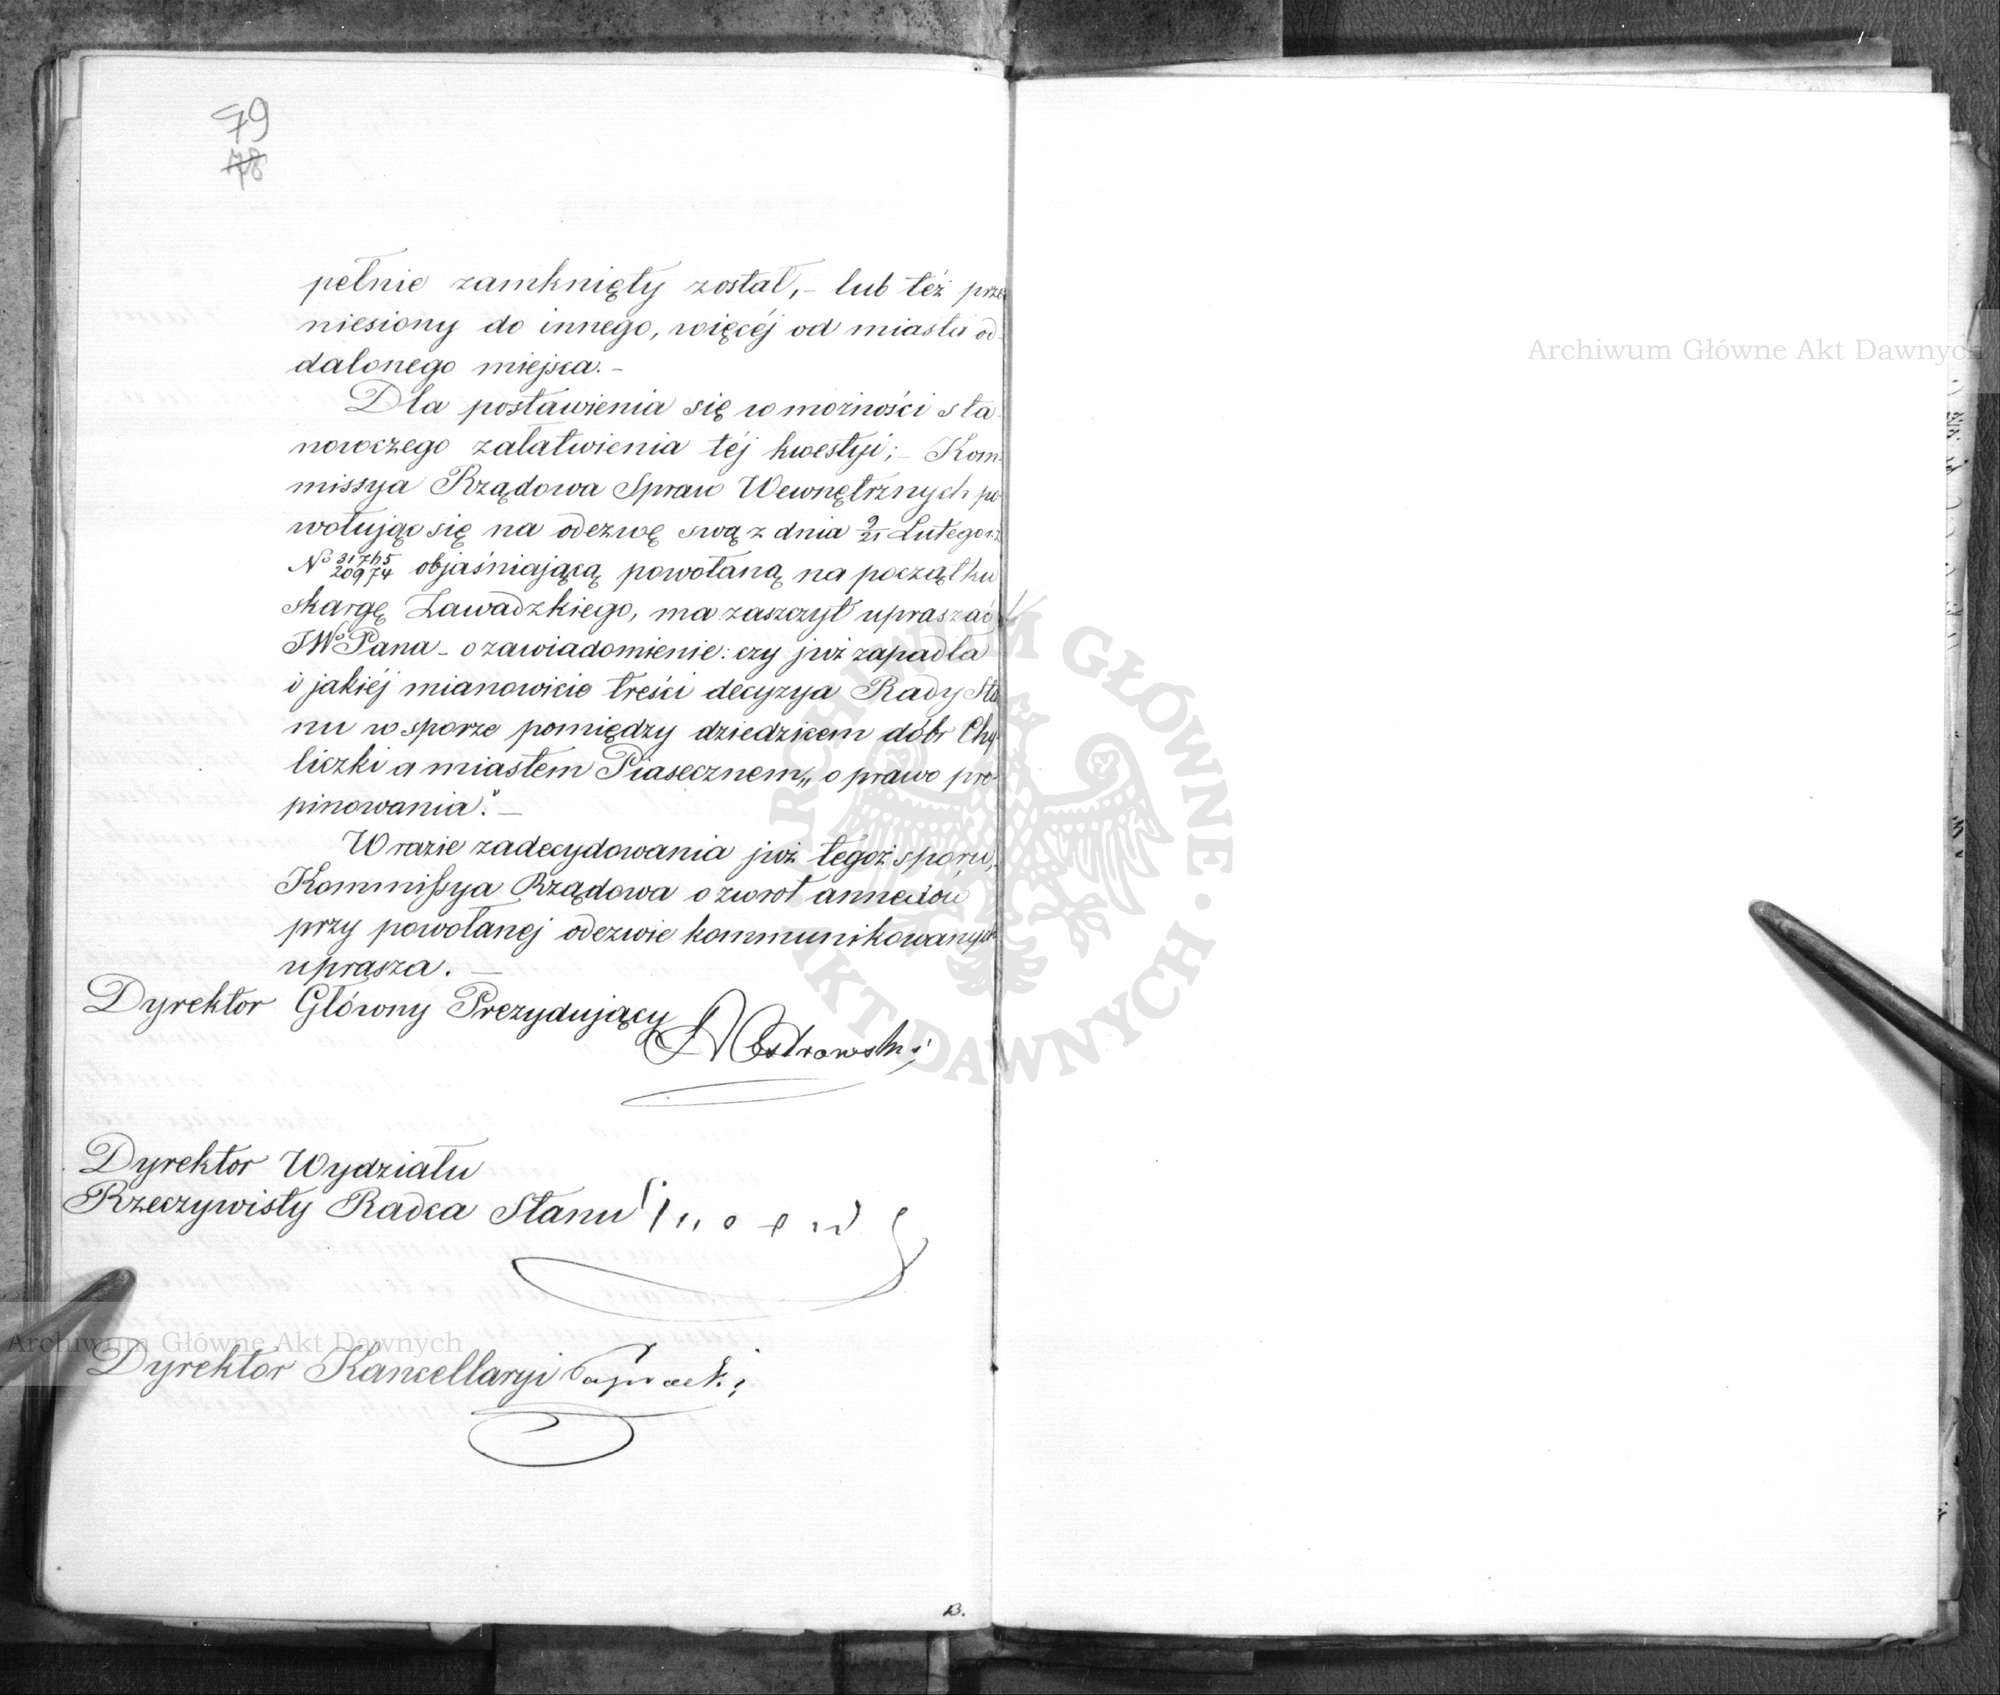 79
78
pełnie zamknięty został,– lub też prze
niesiony do innego, więcéj od miasta od
dalonego miejsca.–
Dla postawienia się w możności sta
nowczego załatwienia téj kwestyi;– Kom
missya Rządowa Spraw Wewnętrznych po
wołując się na odezwę swą z dnia 9/21 Lutego r.z.
No 31745/20974 objaśniającą powołaną na początku
skargę Zawadzkiego, ma zaszczyt upraszać
JWo Pana – o zawiadomienie: czy już zapadła
i jakiéj mianowicie treści decyzya Rady Sta
nu w sporze pomiędzy dziedzicem dóbr Chy
liczki a miastem Piasecznem „o prawo pro
pinowania”.–
W razie zadecydowania już tegoż sporu,
Kommissya Rządowa o zwrot annexów
przy powołanej odezwie kommunikowanych
uprasza.–
Dyrektor Główny Prezydujący Ostrowski
Dyrektor Wydziału
Rzeczywisty Radca Stanu
Dyrektor Kancellaryi
B.
Archiwum Główne Akt Dawnych
ARCHIWUM GŁÓWNE · AKT DAWNYCH ·
Archiwum Główne Akt Dawnych